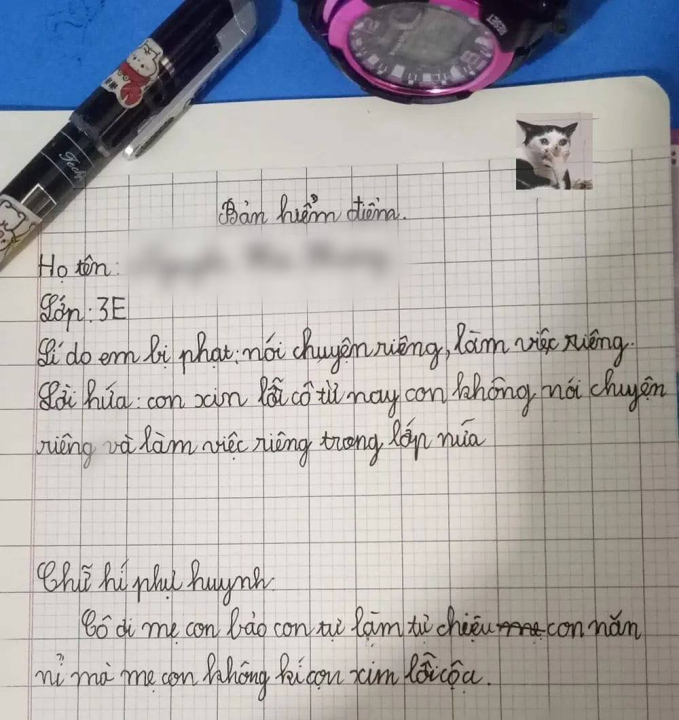 RESET
Bản hiểm điểm.
Họ tên:
Lớp: 3E
Lí do em bị phạt: nói chuyện riêng, làm việc riêng.
Lời hứa: con xin lỗi cô từ nay con không nói chuyện
riêng và làm việc riêng trong lớp nữa
Chữ kí phụ huynh
Cô ơi mẹ con bảo con tự làm tự chiệu mẹ con năn
nỉ mà mẹ con không kí cọn xin lỗi cộa.